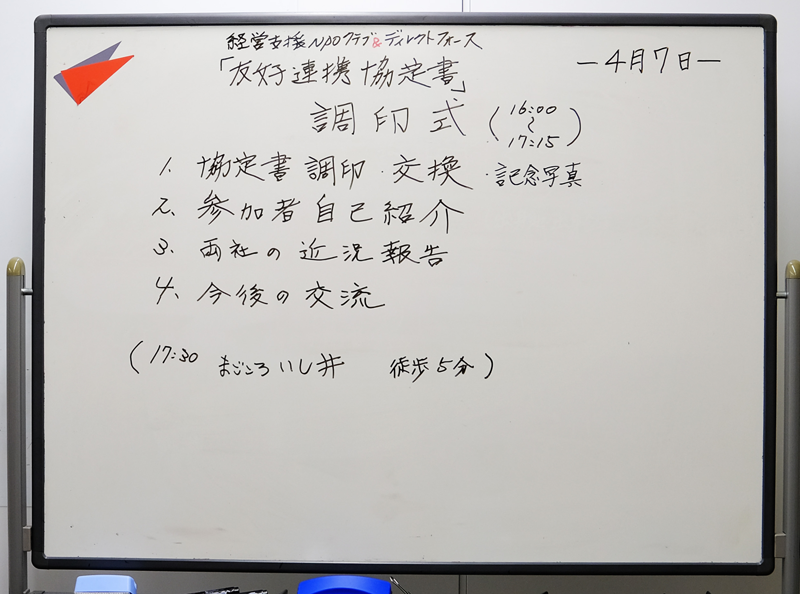 経営支援NPOクラブ&ディレクトフォース
「友好連携協定書」
―4月7日―
調印式 (16:00〜17:15)
1. 協定書調印・交換・記念写真
2. 参加者自己紹介
3. 両社の近況報告
4. 今後の交流
(17:30 まごころいし井 徒歩5分)